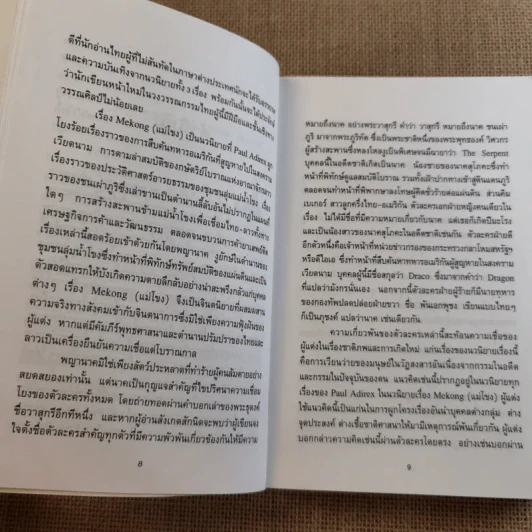 ดีที่นักอ่านไทยผู้ที่ไม่สันทัดในภาษาต่างประเทศนักจะได้รับอรรถรส
และความบันเทิงจากนวนิยายทั้ง 3 เรื่อง พร้อมกันนั้นจะได้ประจักษ์
ว่านักเขียนหน้าใหม่ในวงวรรณกรรมไทยผู้นี้มีฝีมือและชั้นเชิงทาง
วรรณศิลป์ไม่น้อยเลย
เรื่อง Mekong (แม่โขง) เป็นนวนิยายที่ Paul Adirex ผูก
โยงร้อยเรื่องราวของการสืบค้นทหารอเมริกันที่สูญหายไปในสงคราม
เวียดนาม การตามล่าสมบัติของกษัตริย์โบราณแห่งอาณาจักรลาว
เรื่องราวของประวัติศาสตร์อารยธรรมของชุมชนลุ่มแม่น้ำโขง เรื่อง
ราวของชนเผ่าภูริซึ่งเล่าขานเป็นตำนานลี้ลับอันไม่ปรากฏในแผนที่
ใดๆ การสร้างสะพานข้ามแม่น้ำโขงเพื่อเชื่อมไทย-ลาวทั้งทาง
เศรษฐกิจการค้าและวัฒนธรรม ตลอดจนขบวนการค้ายาเสพติด
เรื่องเหล่านี้สอดร้อยเข้าด้วยกันโดยพญานาค งูยักษ์ในตำนานของ
ชุมชนลุ่มน้ำโขงซึ่งทำหน้าที่พิทักษ์ทรัพย์สมบัติของแผ่นดินและเป็น
ตัวสอดแทรกให้บังเกิดความตายลึกลับอย่างน่าสะพรึงกลัวแก่บุคคล
ต่างๆ เรื่อง Mekong (แม่โขง) จึงเป็นจินตนิยายที่ผสมผสาน
ความจริงทางสังคมเข้ากับจินตนาการซึ่งมิใช่เพียงความฟุ้งฝันของ
ผู้แต่ง หากแต่มีคัมภีร์พุทธศาสนาและตำนานปรัมปราของไทยและ
ลาวเป็นเครื่องยืนยันความเชื่อแต่โบราณกาล
พญานาคมิใช่เพียงสัตว์ประหลาดที่ทำร้ายผู้คนล้มตายอย่าง
สยดสยองเท่านั้น แต่นาคเป็นกุญแจสำคัญที่ไขปริศนาความเชื่อม
โยงของตัวละครทั้งหมด โดยถ่ายทอดผ่านคำบอกเล่าของพระธุดงค์
ชื่อวาสุกรีอีกทีหนึ่ง และหากผู้อ่านสังเกตสักนิดจะพบว่าผู้เขียนจง
ใจตั้งชื่อตัวละครสำคัญทุกตัวที่มีความพัวพันเกี่ยวข้องกันให้มีความ
8
หมายถึงนาค อย่างพระวาสุกรี คำว่า วาสุกรี หมายถึงนาค ชนเผ่า
ภูริ มาจากพระภูริทัต ซึ่งเป็นพระชาติหนึ่งของพระพุทธองค์ วิศวกร
ผู้สร้างสะพานซึ่งหลงใหลงูเป็นพิเศษจนมีฉายาว่า The Serpent
บุคคลนี้ในอดีตชาติเกิดเป็นนาค น้องชายของนาคสุโภคะซึ่งทำ
หน้าที่พิทักษ์ดูแลสมบัติโบราณ รวมทั้งเฝ้าปากทางเข้าสู่ดินแดนภูริ
ตลอดจนทำหน้าที่พิพากษาลงโทษผู้คิดชั่วร้ายต่อแผ่นดิน ส่วนคิม
เบเกอร์ สาวลูกครึ่งไทย-อเมริกัน ตัวละครเอกฝ่ายหญิงคนเดียวใน
เรื่อง ไม่ได้มีชื่อที่มีความหมายเกี่ยวกับนาค แต่เธอก็เกิดปีมะโรง
และเป็นน้องสาวของนาคสุโภคะในอดีตชาติเช่นกัน ตัวละครฝ่ายดี
อีกตัวหนึ่งคือเจ้าหน้าที่หน่วยข่าวกรองของกระทรวงกลาโหมสหรัฐฯ
หรือดีไอเอ ซึ่งทำหน้าที่สืบค้นหาทหารอเมริกันผู้สูญหายในสงคราม
เวียดนาม บุคคลผู้นี้มีชื่อสกุลว่า Draco ซึ่งมาจากคำว่า Dragon
ที่แปลว่ามังกรนั่นเอง นอกจากนี้ตัวละครฝ่ายผู้ร้ายก็มีนายทหาร
ของกองทัพปลดปล่อยฝ่ายขวา ชื่อ พันเอกพูชง เขียนแบบไทยๆ
ก็เป็นภุชงค์ แปลว่านาค เช่นเดียวกัน
ความเกี่ยวพันของตัวละครเหล่านี้สะท้อนความเชื่อของ
ผู้แต่งในเรื่องชาติภพและการเกิดใหม่ แก่นเรื่องของนวนิยายเรื่องนี้
คือการเวียนว่ายของมนุษย์ในวัฏสงสารอันเนื่องมาจากกรรมในอดีต
และกรรมในปัจจุบันของตน แนวคิดเช่นนี้ปรากฏอยู่ในนวนิยายทุก
เรื่องของ Paul Adirex ในนวนิยายเรื่อง Mekong (แม่โขง) ผู้แต่ง
ใช้แนวคิดนี้เป็นแก่นในการผูกโครงเรื่องอันนำบุคคลต่างกลุ่ม ต่าง
จุดประสงค์ ต่างเชื้อชาติศาสนาให้มามีเหตุการณ์พันเกี่ยวกัน ผู้แต่ง
บอกกล่าวความคิดเช่นนี้ผ่านตัวละครโดยตรง อย่างเช่นบอกผ่าน
9